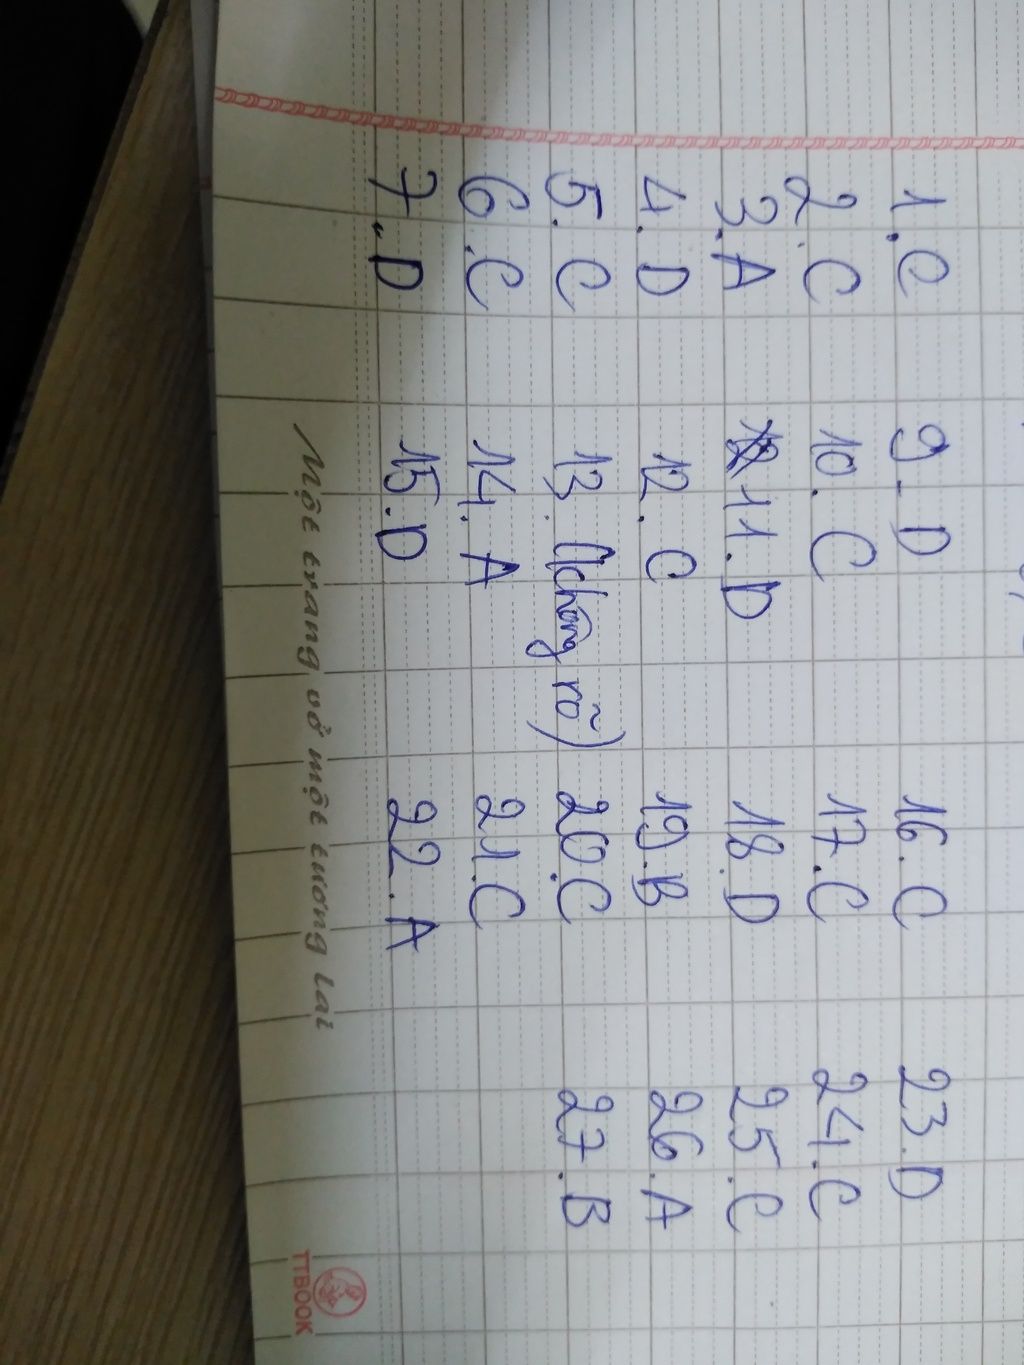 1. C
2. C
3. A
4. D
5. C
6. C
7. D
9. D
10. C
11. D
12. C
13. (không rõ)
14. A
15. D
16. C
17. C
18. D
19. B
20. C
21. C
22. A
23. D
24. C
25. C
26. A
27. B
Một trang vở một tương lai
TTBOOK